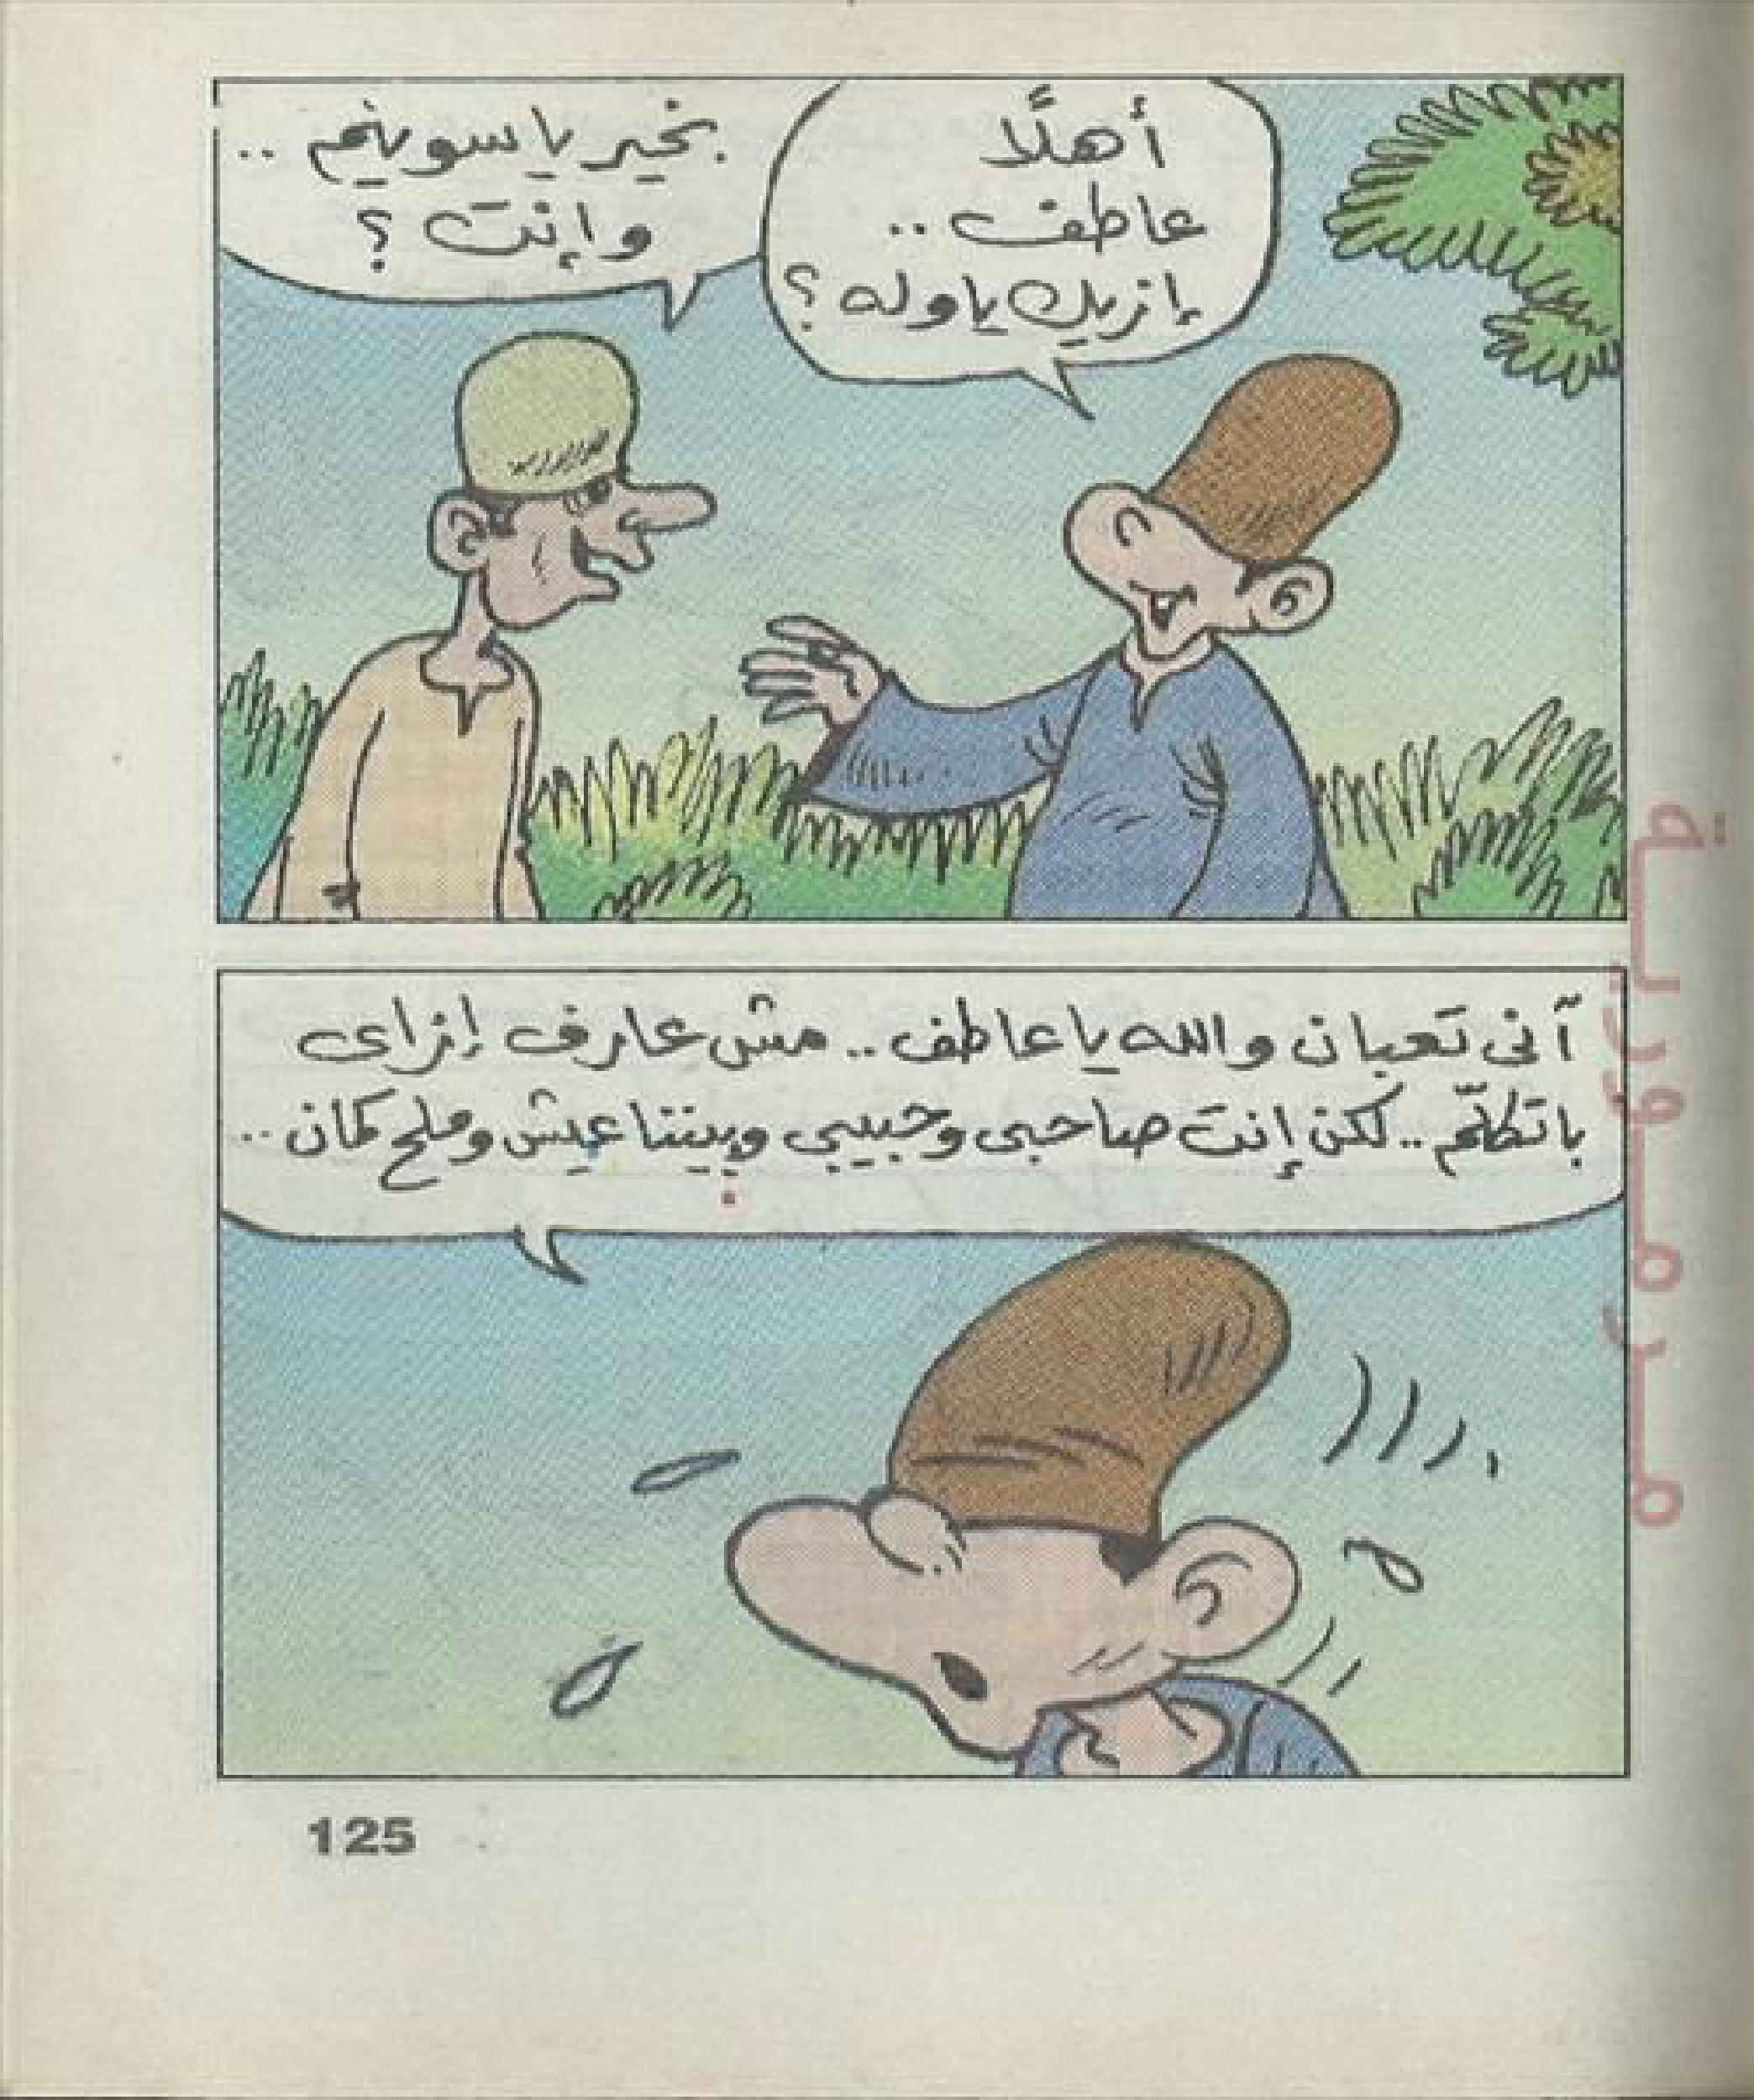 أهلًا
عاطف ..
إزيك ياوله ؟
بخير يا سويلم ..
وإنت ؟
آنى تعبان والله يا عاطف .. مش عارف إزاى
باتكلّم .. لكن إنت صاحبى وحبيبي وبيننا عيش وملح كمان ..
125